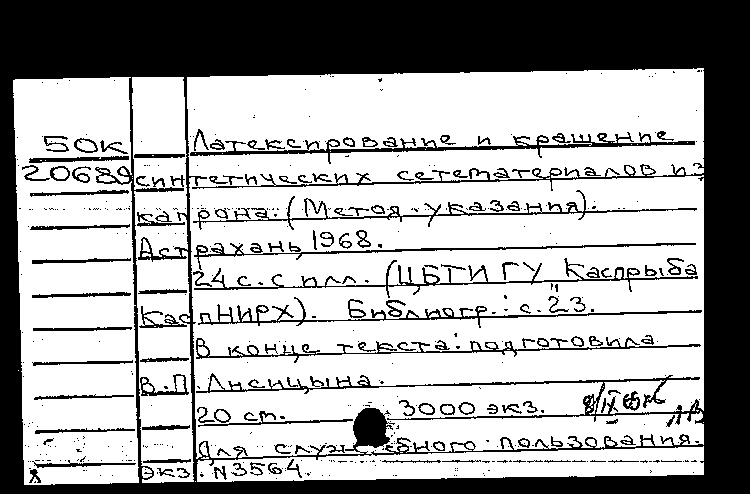 50К Латексирование и крашение
20689 синтетических сетематериалов из
капрона. (Метод. указания).
Астрахань, 1968.
24 с. с илл. (ЦБТИ ГУ "Каспрыба"
КаспНИРХ). Библиогр.: с. 23.
В конце текста: подготовила
В.П. Лисицына.
20 ст. 3000 экз. 8/IX
Для служебного пользования.
Экз. N3564.